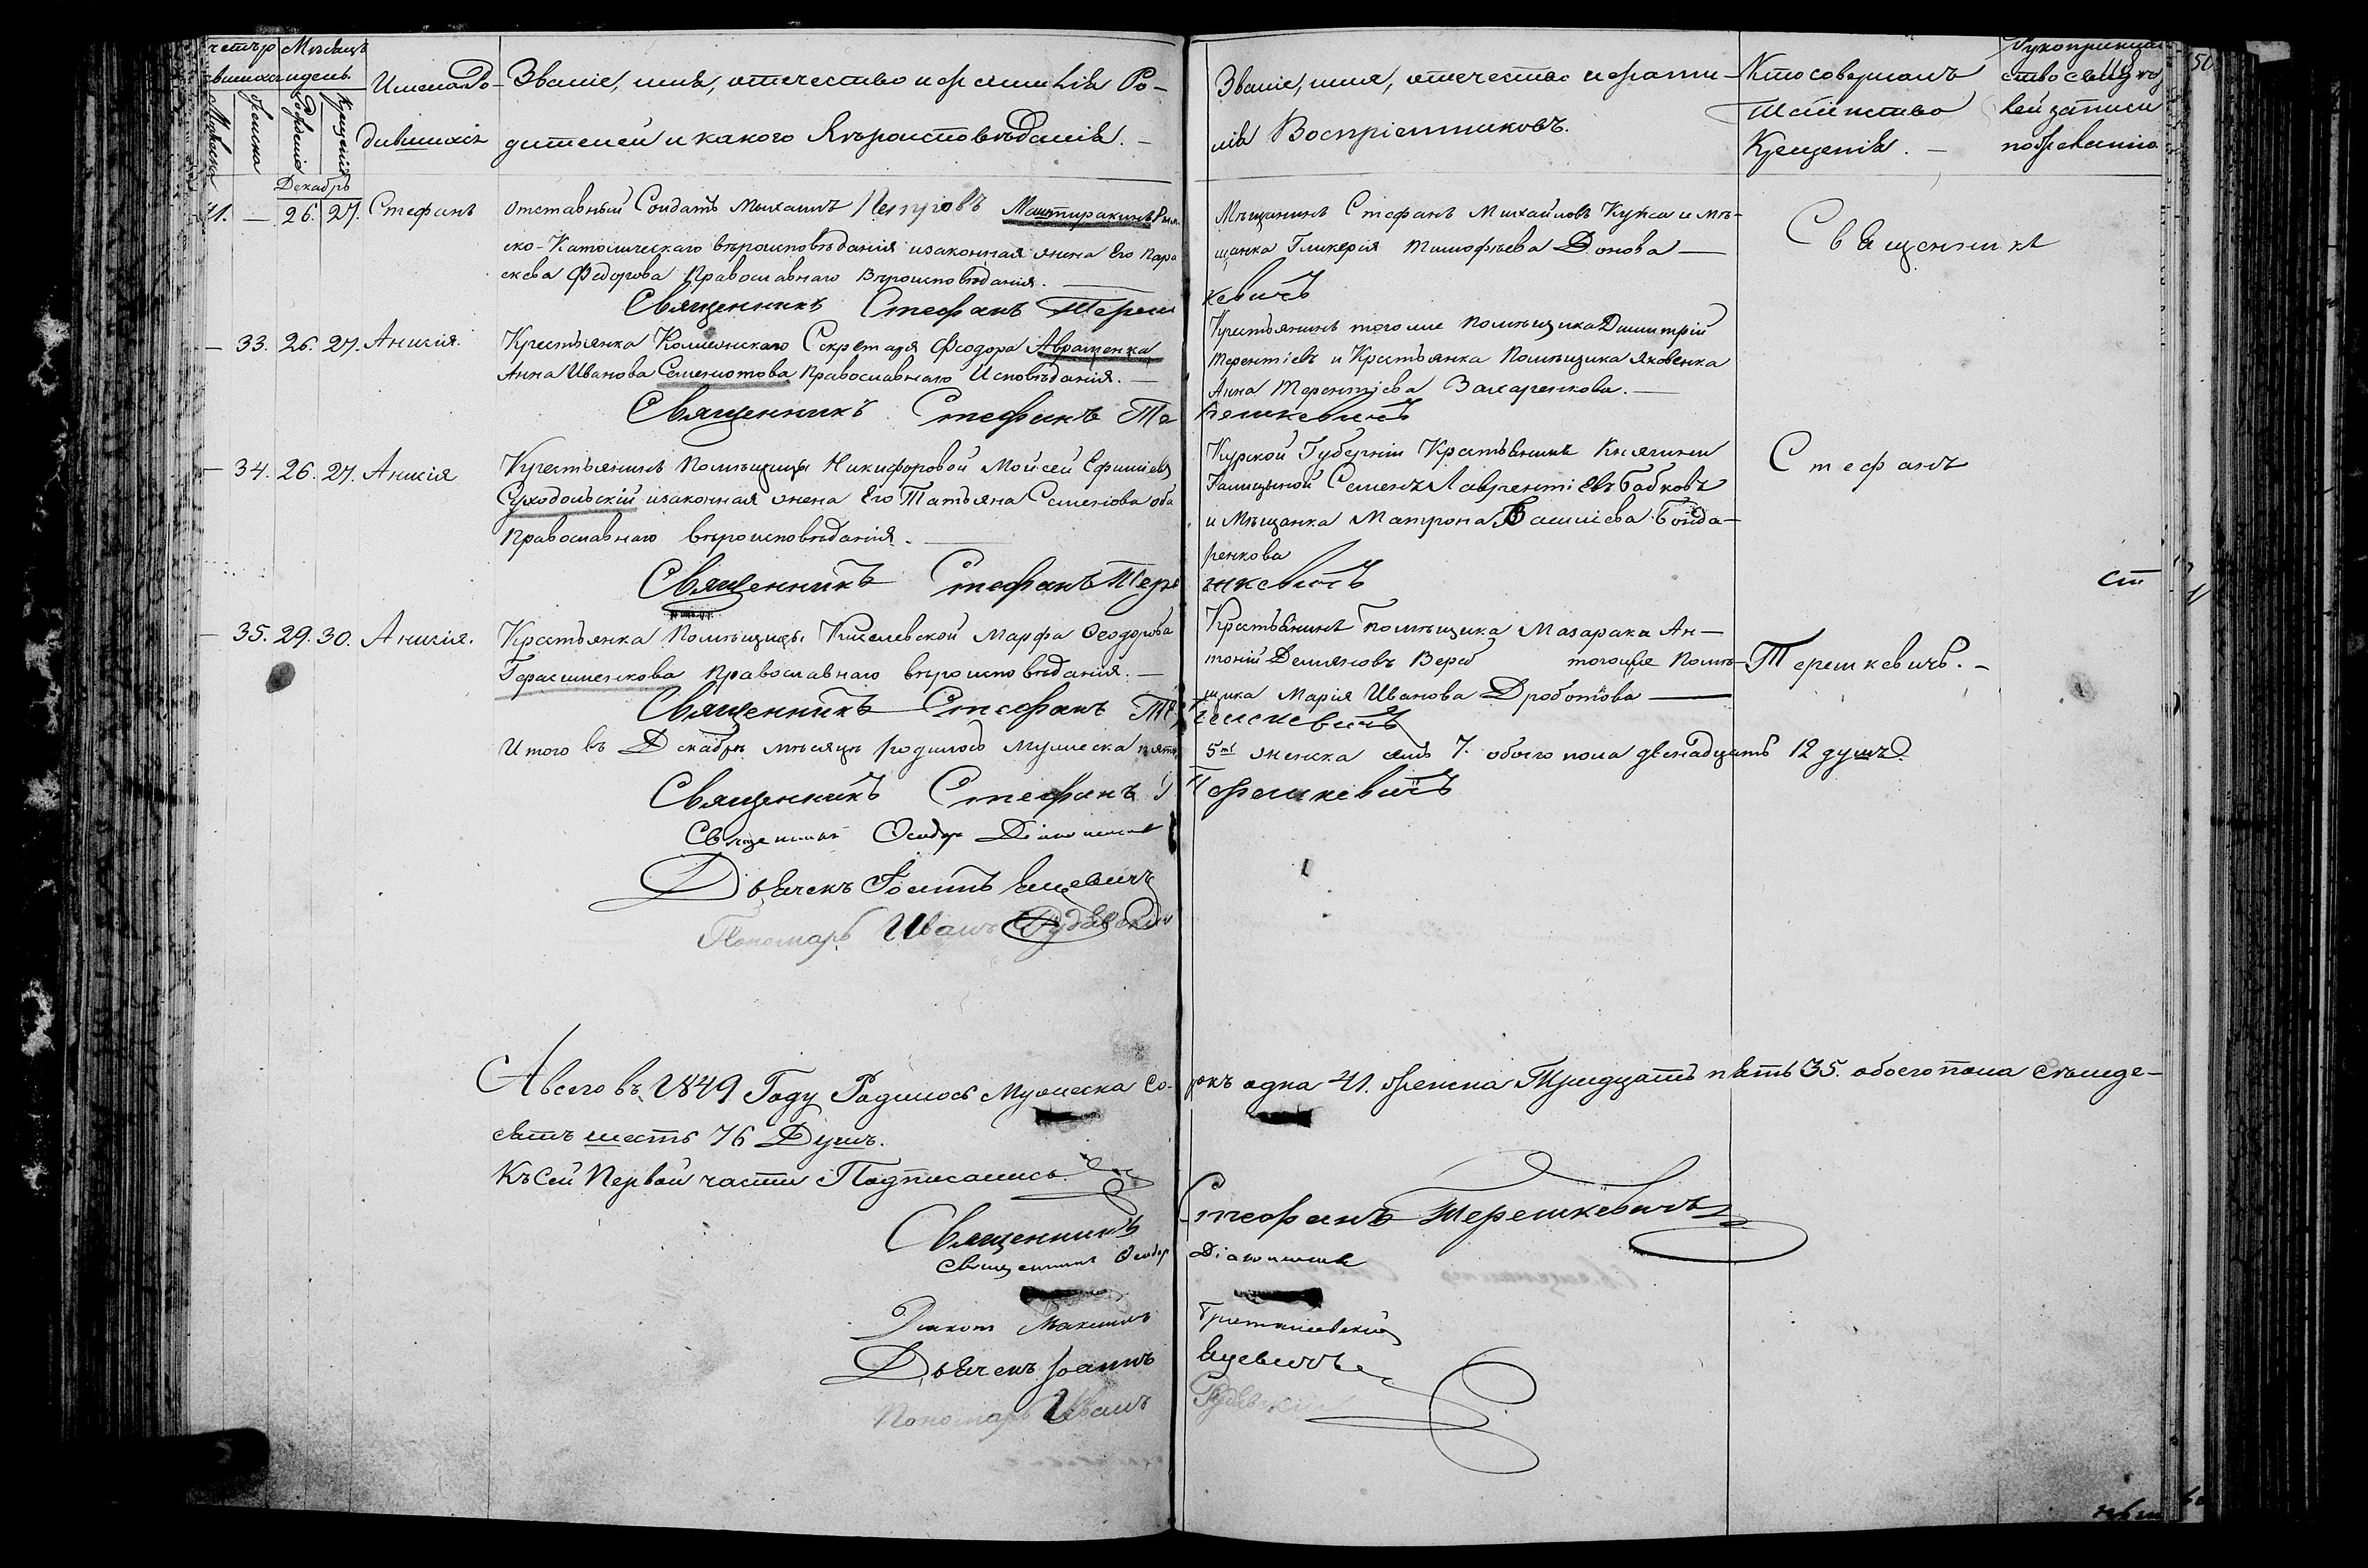 Мѣсяцъ
и день
рожденія
крещенія
женска
Имена Ро-
дившихся
Званіе, имя, отечество и фамилія Ро-
дителей и какого Вѣроисповѣданія. —
Званіе, имя, отечество и фами-
лія Воспріемниковъ.
Кто совершалъ
Таинство
Крещенія. —
Рукоприклад
ство свидѣ
лей записи
по желанію
50
Декабрь
41. — 26. 27. Стефанъ
Отставный Солдатъ Михаилъ Петровъ Рим
ско-Католическаго вѣроисповѣданія и законная жена Его Пара
скева Федорова Православнаго Вѣроисповѣданія. —
Мѣщанинъ Стефанъ Михайловъ и мѣ-
щанка Гликерія Тимофѣева Донова —
Священникъ
Священникъ Стефанъ Тереш
кевичъ
— 33. 26. 27. Анисія.
Крестьянка Секретаря Феодора Авраменка
Анна Иванова Семенютова Православнаго Исповѣданія. —
Крестьянинъ того же помѣщика Димитрій
Терентіевъ и Крестьянка Помѣщика Яковенка
Анна Терентіева Захаренкова. —
Священникъ Стефанъ Те
решкевичъ
— 34. 26. 27. Анисія
Крестьянинъ Помѣщицы Никифоровой Мойсей Ефимієвъ
Суходольскій и законная жена Его Татьяна Семенова оба
Православнаго вѣроисповѣданія. —
Курской Губерніи Крестьянинъ Княгини
Галицыной Семенъ Лаврентіевъ Бабковъ
и Мѣщанка Матрона Васильева Бонда-
ренкова
Стефанъ
Священникъ Стефанъ Тере
шкевичъ
ст
— 35. 29. 30. Анисія.
Крестьянка Помѣщицы Киселевской Марфа Феодорова
Герасименкова Православнаго вѣроисповѣданія. —
Крестьянинъ помѣщика Мазараки Ан-
тоній Демяновъ Верб того же Помѣ-
щика Марія Иванова Дроботова —
Терешкевичъ. —
Священникъ Стефанъ Те
решкевичъ
Итого въ Декабрѣ мѣсяцѣ родилось мужеска пять
5ть женска семь 7. обоего пола двенадцать 12 душъ.
Священникъ Стефанъ Т
Терешкевичъ
Священникъ Феодоръ
Дьячекъ Іоаннъ Ецевичъ
Пономарь Иванъ Рудавскій
А всего въ 1849 Году Родилось Мужеска Со-
рокъ одна 41. женска Тридцать пять 35. обоего пола Семьде-
сятъ шесть 76 Душъ.
Къ Сей Первой части Подписались
Священникъ
Стефанъ Терешкевичъ
Священникъ Феодоръ
Діаконъ Максимъ
Дьячекъ Іоаннъ
Ецевичъ
Пономарь Иванъ
Рудавскій